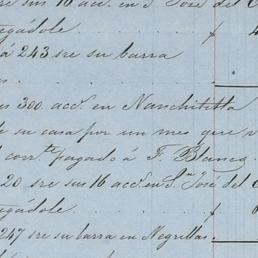 sre sus 16 acc.s en S. José del C
egádole
á 243 sre su barra
s.
us 300 acc.s en Nanchititla
e su casa por un mes que v
l corr.te pagado á F. Blancq.
20 sre sus 16 acc.s en S.n José del C
egádole 6
247 sre su barra en Negrillas